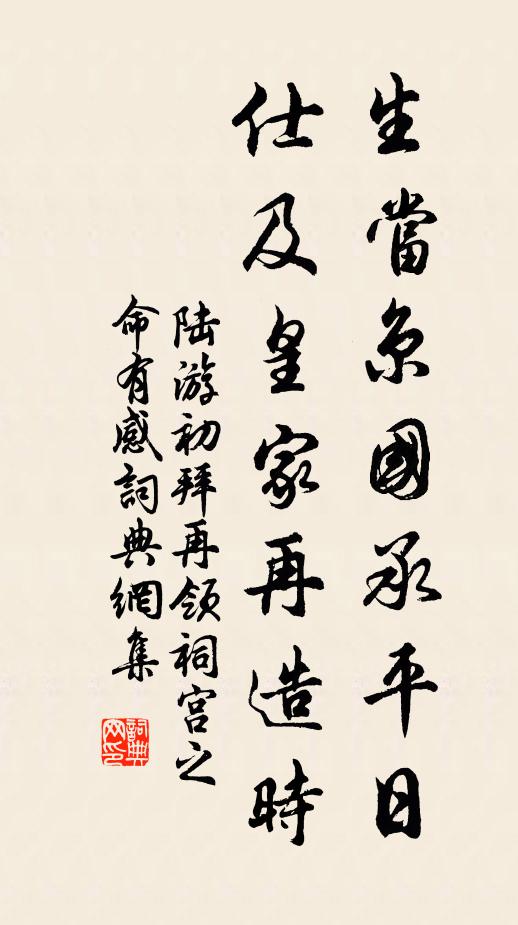 生當京國承平日
仕及皇家再造時
陆游初拜再领祠宫之
命有感詞典網集
詞典网印